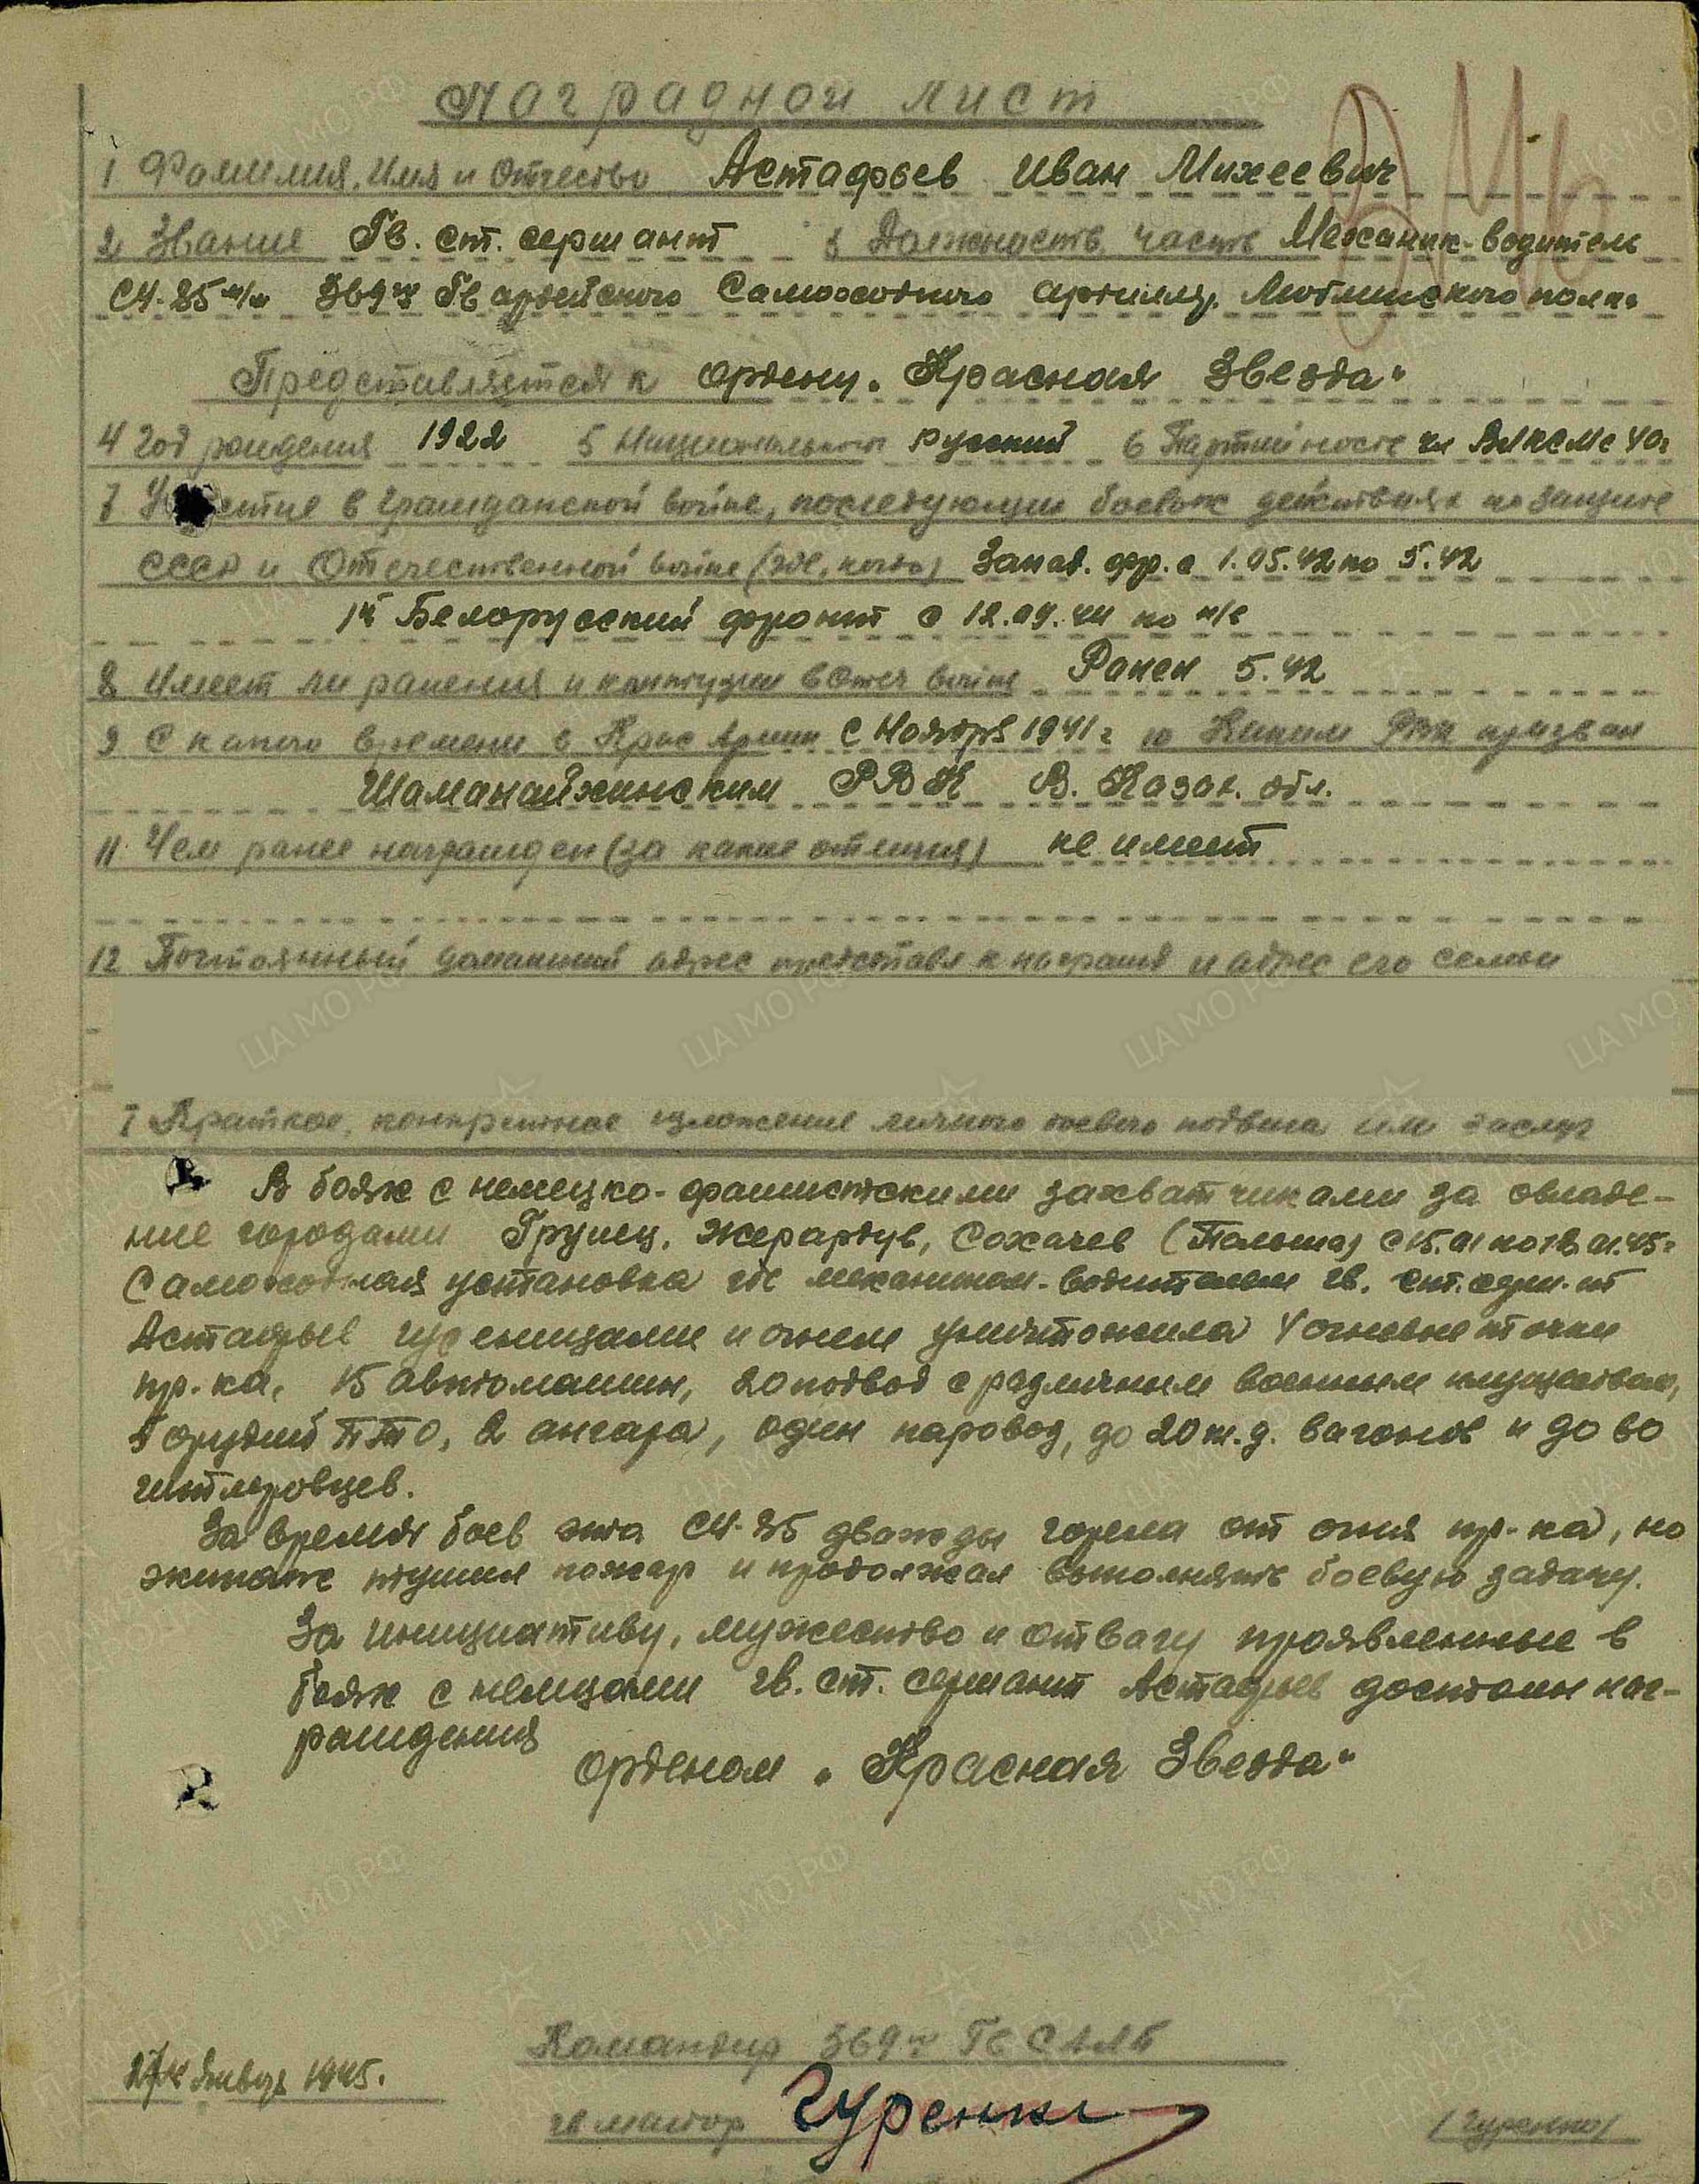 Наградной лист
1 Фамилия, Имя и Отчество Астафьев Иван Михеевич
2 Звание Гв. ст. сержант 3 Должность, часть Механик-водитель
СУ-85 м/м 369го Гвардейского Самоходного артилл. Люблинского полка
Представляется к ордену „Красная Звезда"
4 Год рождения 1922 5 Национальность русский 6 Партийность чл ВЛКСМ с 40г
7 Участие в гражданской войне, последующих боевых действиях по защите
СССР и Отечественной войне (где, когда) Запад. фр. с 1.05.42 по 5.42
1й Белорусский фронт с 12.09.44 по н/в
8 Имеет ли ранения и контузии в Отеч войне Ранен 5.42
9 С какого времени в Крас Армии с Ноября 1941г 10 Каким РВК призван
Шаманайхинским РВК В. Казах. обл.
11 Чем ранее награжден (за какие отличия) не имеет
12 Постоянный домашний адрес представл к награжд и адрес его семьи
7 Краткое, конкретное изложение личного боевого подвига или заслуг
В боях с немецко-фашистскими захватчиками за овладе-
ние городами Груец, Жерардув, Сохачев (Польша) с 15.01 по 18.01.45г
Самоходная установка где механиком-водителем гв. ст. серж-т
Астафьев гусеницами и огнем уничтожила 4 огневые точки
пр-ка, 15 автомашин, 20 подвод с различным военным имуществом,
орудий ПТО, 2 ангара, один паровоз, до 20 ж.д. вагонов и до 60
гитлеровцев.
За время боев эта СУ-85 дважды горела от огня пр-ка, но
экипаж тушил пожар и продолжал выполнять боевую задачу.
За инициативу, мужество и отвагу проявленные в
боях с немцами гв. ст. сержант Астафьев достоин наг-
раждения
орденом „Красная Звезда"
Командир 369го Гв САЛП
27 Января 1945.
гв майор Гуренко /Гуренко/
ЦА МО РФ
ПАМЯТЬ НАРОДА